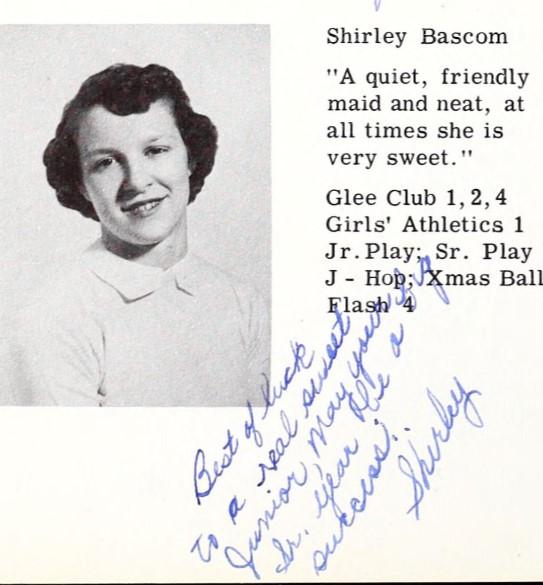 Shirley Bascom
"A quiet, friendly
maid and neat, at
all times she is
very sweet."
Glee Club 1,2,4
Girls' Athletics 1
Jr.Play; Sr. Play
J - Hop; Xmas Ball
Flash 4
Best of luck
to a real sweet
Junior. May your big
Sr. year be a
success!.
Shirley